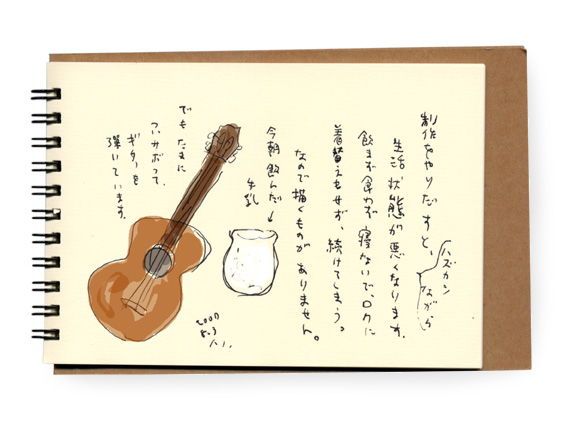 ハズカシながら
制作をやりだすと、
生活状態が悪くなります。
飲まず食わず寝ないで、ロクに
着替えもせず、続けてしまう。
なので描くものがありません。
今朝飲んだ↓
牛乳
でもたまに
サボって、
ギターを
弾いています。
2007